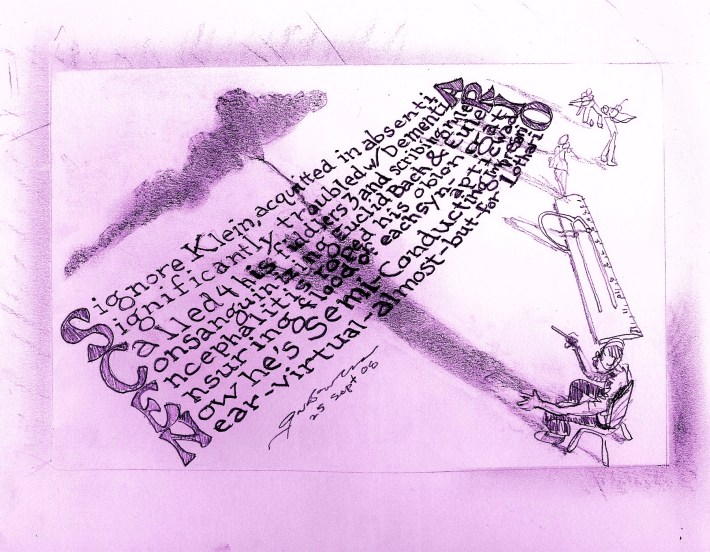 Signore Klein, acquitted in absentiA
Significantly-troubled w/ DementiA
Called 4 this fiddlers 3 and scribiformeR
Consanguinizing Euclid Bach & EuleR
Encephalitis toned his oblon
Ensuring flood of each synaptic
Now he's Semi-Conducting
Near-virtual-almost-but-for Lothario
25 Sept 08